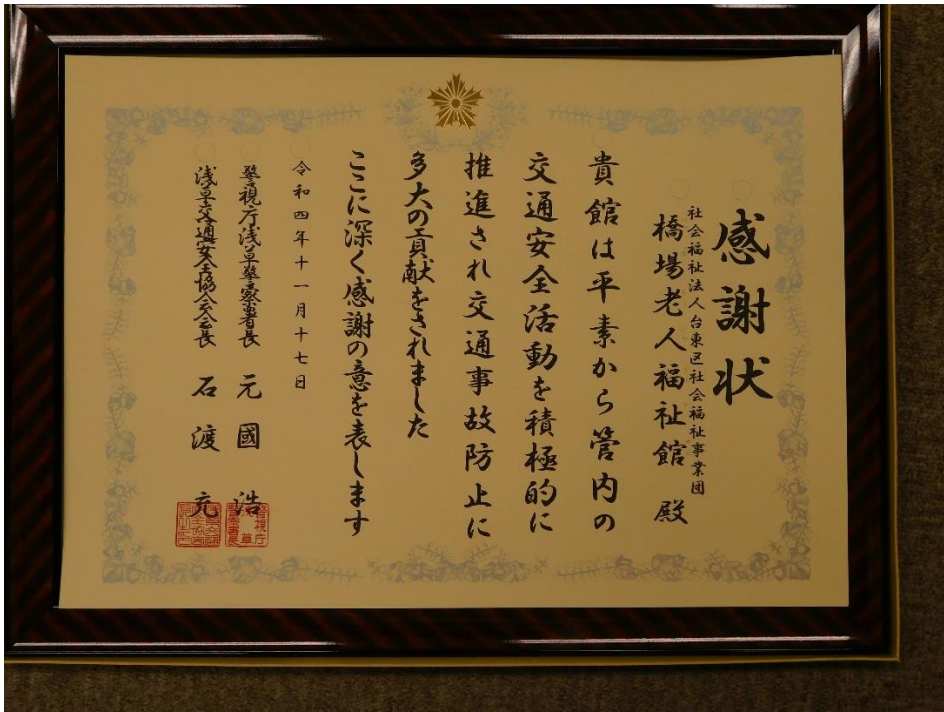 感謝状
社会福祉法人台東区社会福祉事業団
橋場老人福祉館 殿
貴館は平素から管内の
交通安全活動を積極的に
推進され交通事故防止に
多大の貢献をされました
ここに深く感謝の意を表します
令和四年十一月十七日
警視庁浅草警察署長 元國 浩
浅草交通安全協会会長 石渡 充